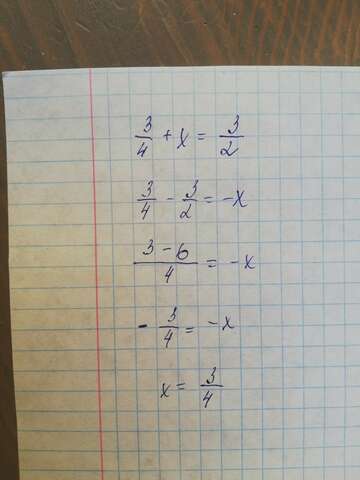 3/4 + x = 3/2
3/4 - 3/2 = -x
3-6/4 = -x
- 3/4 = -x
x = 3/4